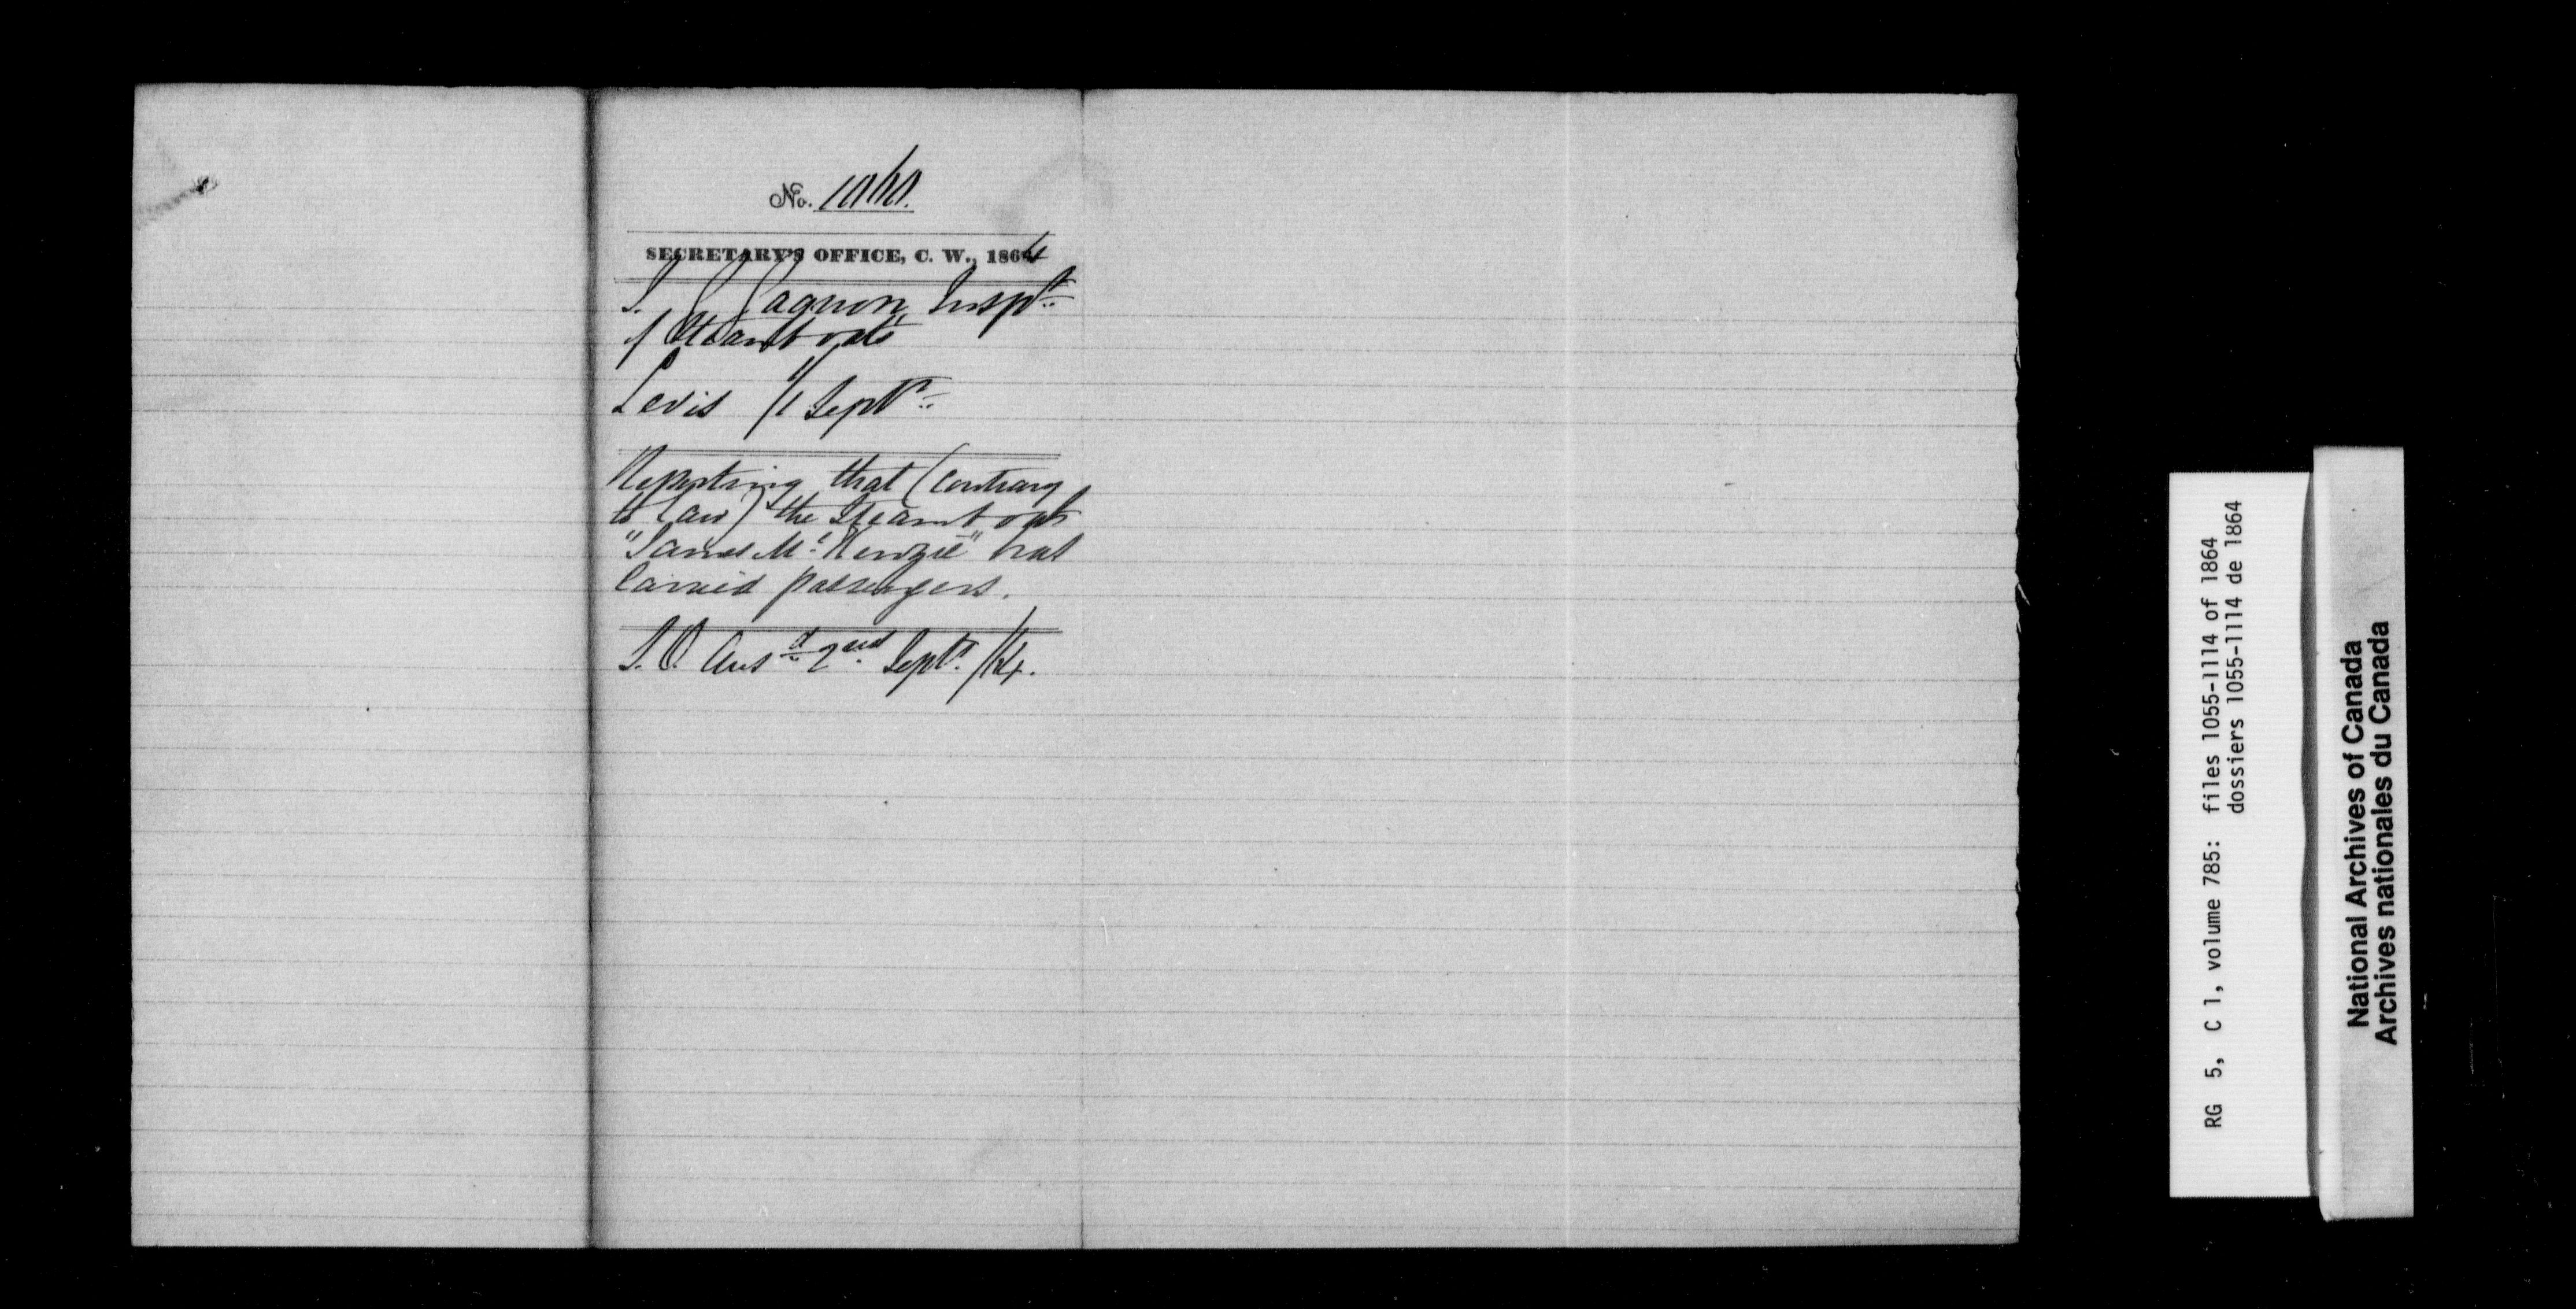 No. 1060.
SECRETARY'S OFFICE, C. W., 1864
Gagnon, Inspr
of Steamboats
Levis 1 Septr
Reporting that (contrary
to law) the Steamboat
"James McKenzie" has
Carried passengers.
Ansd 2nd Septr /64.
RG 5, C 1, volume 785: files 1055-1114 of 1864
dossiers 1055-1114 de 1864
National Archives of Canada
Archives nationales du Canada